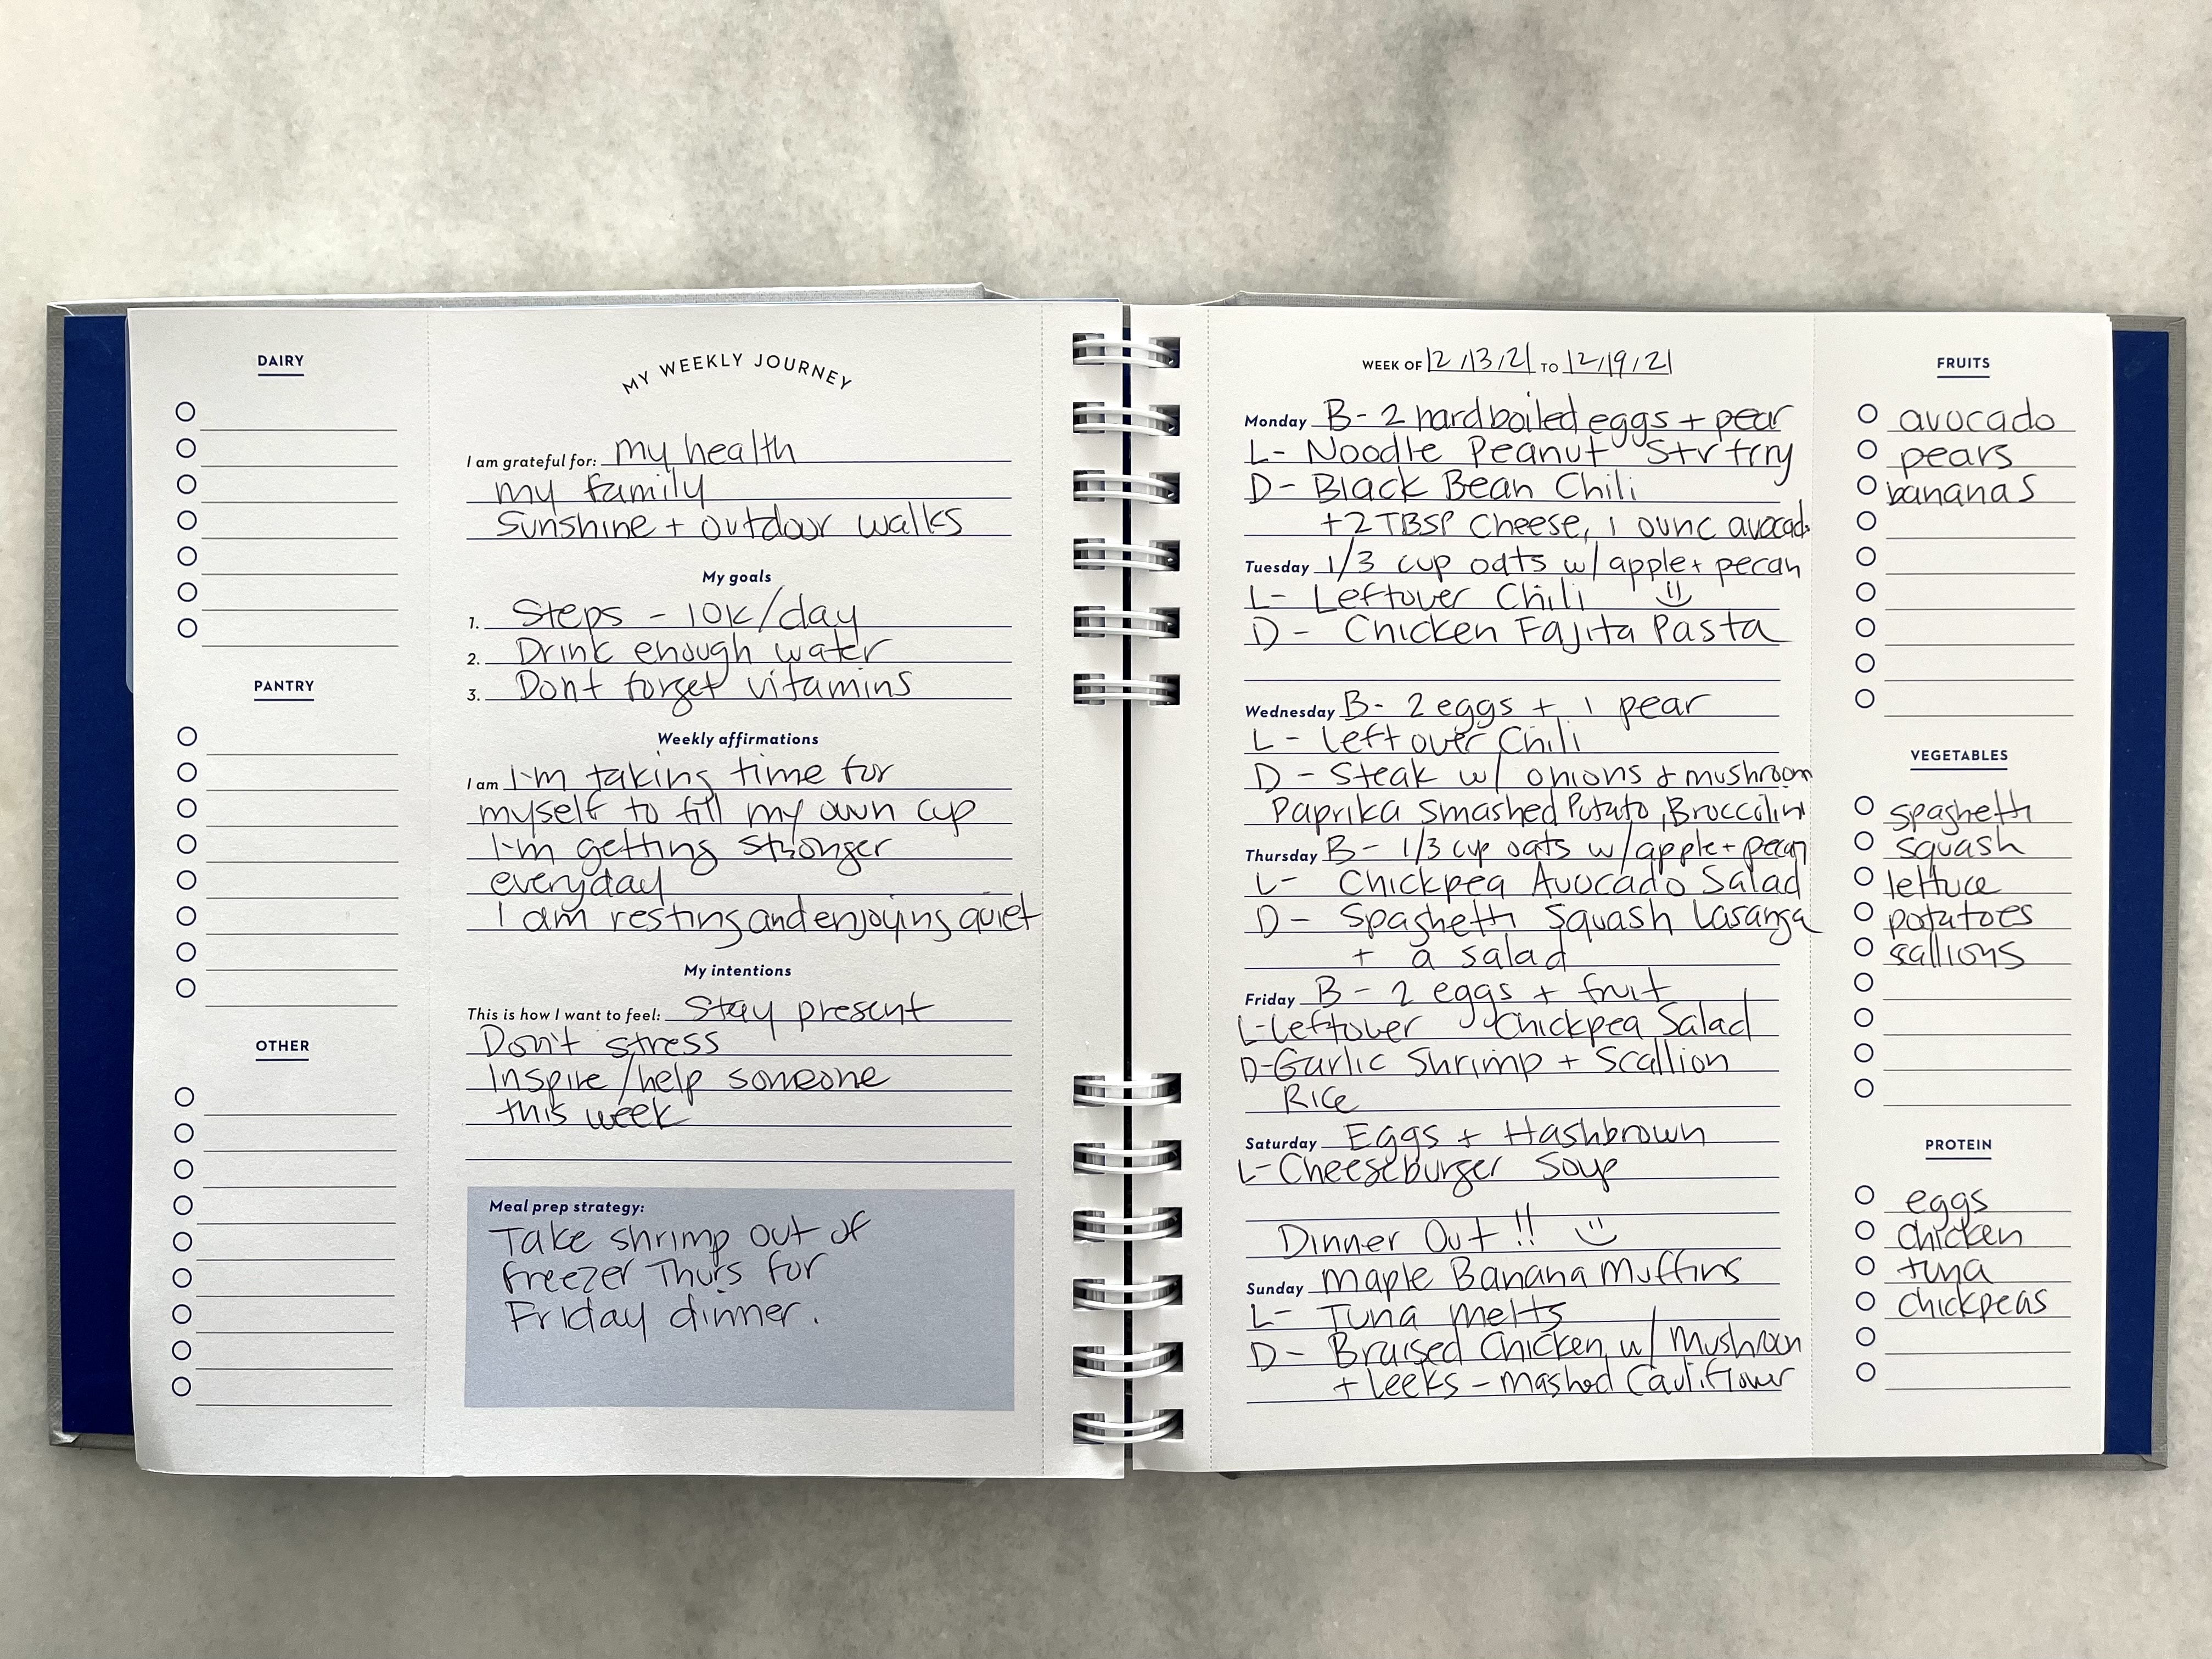 DAIRY
PANTRY
OTHER
MY WEEKLY JOURNEY
I am grateful for: my health
my family
Sunshine + outdoor walks
My goals
1. Steps - 10K/day
2. Drink enough water
3. Dont forget vitamins
Weekly affirmations
I am I'm taking time for
myself to fill my own cup
I'm getting stronger
everyday
I am resting and enjoying quiet
My intentions
This is how I want to feel: Stay present
Don't stress
Inspire/help someone
this week
Meal prep strategy:
Take shrimp out of
freezer Thurs for
Friday dinner.
WEEK OF 12/13/21 TO 12/19/21
Monday B- 2 hardboiled eggs + pear
L- Noodle Peanut Strfry
D- Black Bean Chili
+2 TBSP Cheese, 1 ounc avocado
Tuesday 1/3 cup oats w/apple + pecan
L- Leftover Chili
D- Chicken Fajita Pasta
Wednesday B- 2 eggs + 1 pear
L- Leftover Chili
D- Steak w/ onions & mushroom
Paprika Smashed Potato, Broccolini
Thursday B- 1/3 cup oats w/apple + pecan
L- Chickpea Avocado Salad
D- Spaghetti Squash Lasanga
+ a salad
Friday B- 2 eggs + fruit
L-Leftover Chickpea Salad
D-Garlic Shrimp + Scallion
Rice
Saturday Eggs + Hashbrown
L-Cheeseburger Soup
Dinner Out!!
Sunday Maple Banana Muffins
L- Tuna Melts
D- Braised Chicken w/ Mushroom
+ Leeks - Mashed Cauliflower
FRUITS
avocado
pears
bananas
VEGETABLES
spaghetti
squash
lettuce
potatoes
sallions
PROTEIN
eggs
Chicken
tuna
Chickpeas